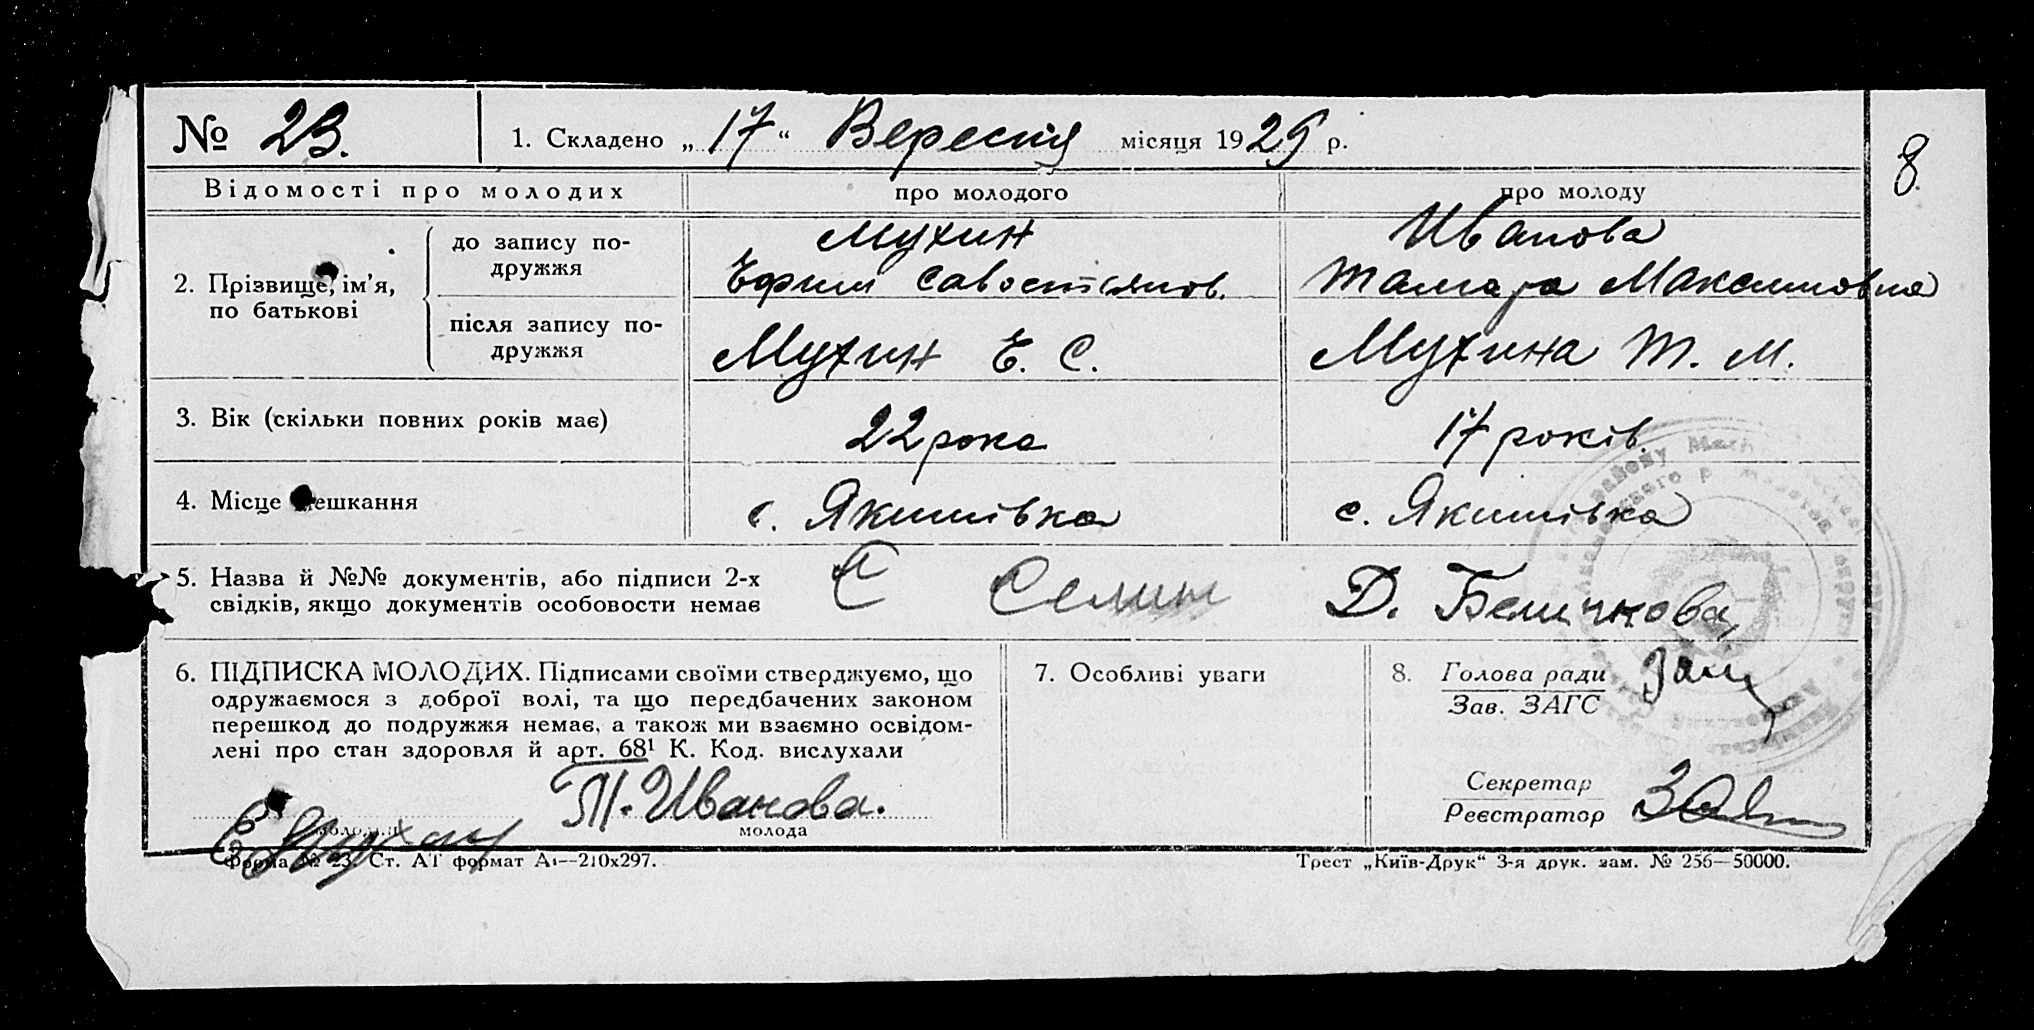 № 23. 1. Складено „17“ Вересня місяця 1929 р.
8
Відомості про молодих про молодого про молоду
2. Прізвище, ім'я, по батькові
до запису по-
дружжя
Мухин
Ефим Савостьянов.
Иванова
Тамара Максимовна
після запису по-
дружжя
Мухин Е. С.
Мухина Т. М.
3. Вік (скільки повних років має) 22 рока 17 років.
4. Місце мешкання с. Якимівка с. Якимівка
5. Назва й №№ документів, або підписи 2-х
свідків, якщо документів особовости немає
С Селин Д. Беличкова
6. ПІДПИСКА МОЛОДИХ. Підписами своїми стверджуємо, що
одружаємося з доброї волі, та що передбачених законом
перешкод до подружжя немає, а також ми взаємно освідом-
лені про стан здоровля й арт. 68¹ К. Код. вислухали
Е Мухин Т. Иванова.
молодий молода
7. Особливі уваги
8. Голова ради
Зав. ЗАГС
Секретар
Реєстратор
Форма № 23. Ст. АТ формат А₄—210х297.
Трест „Київ-Друк“ 3-я друк. зам. № 256—50000.